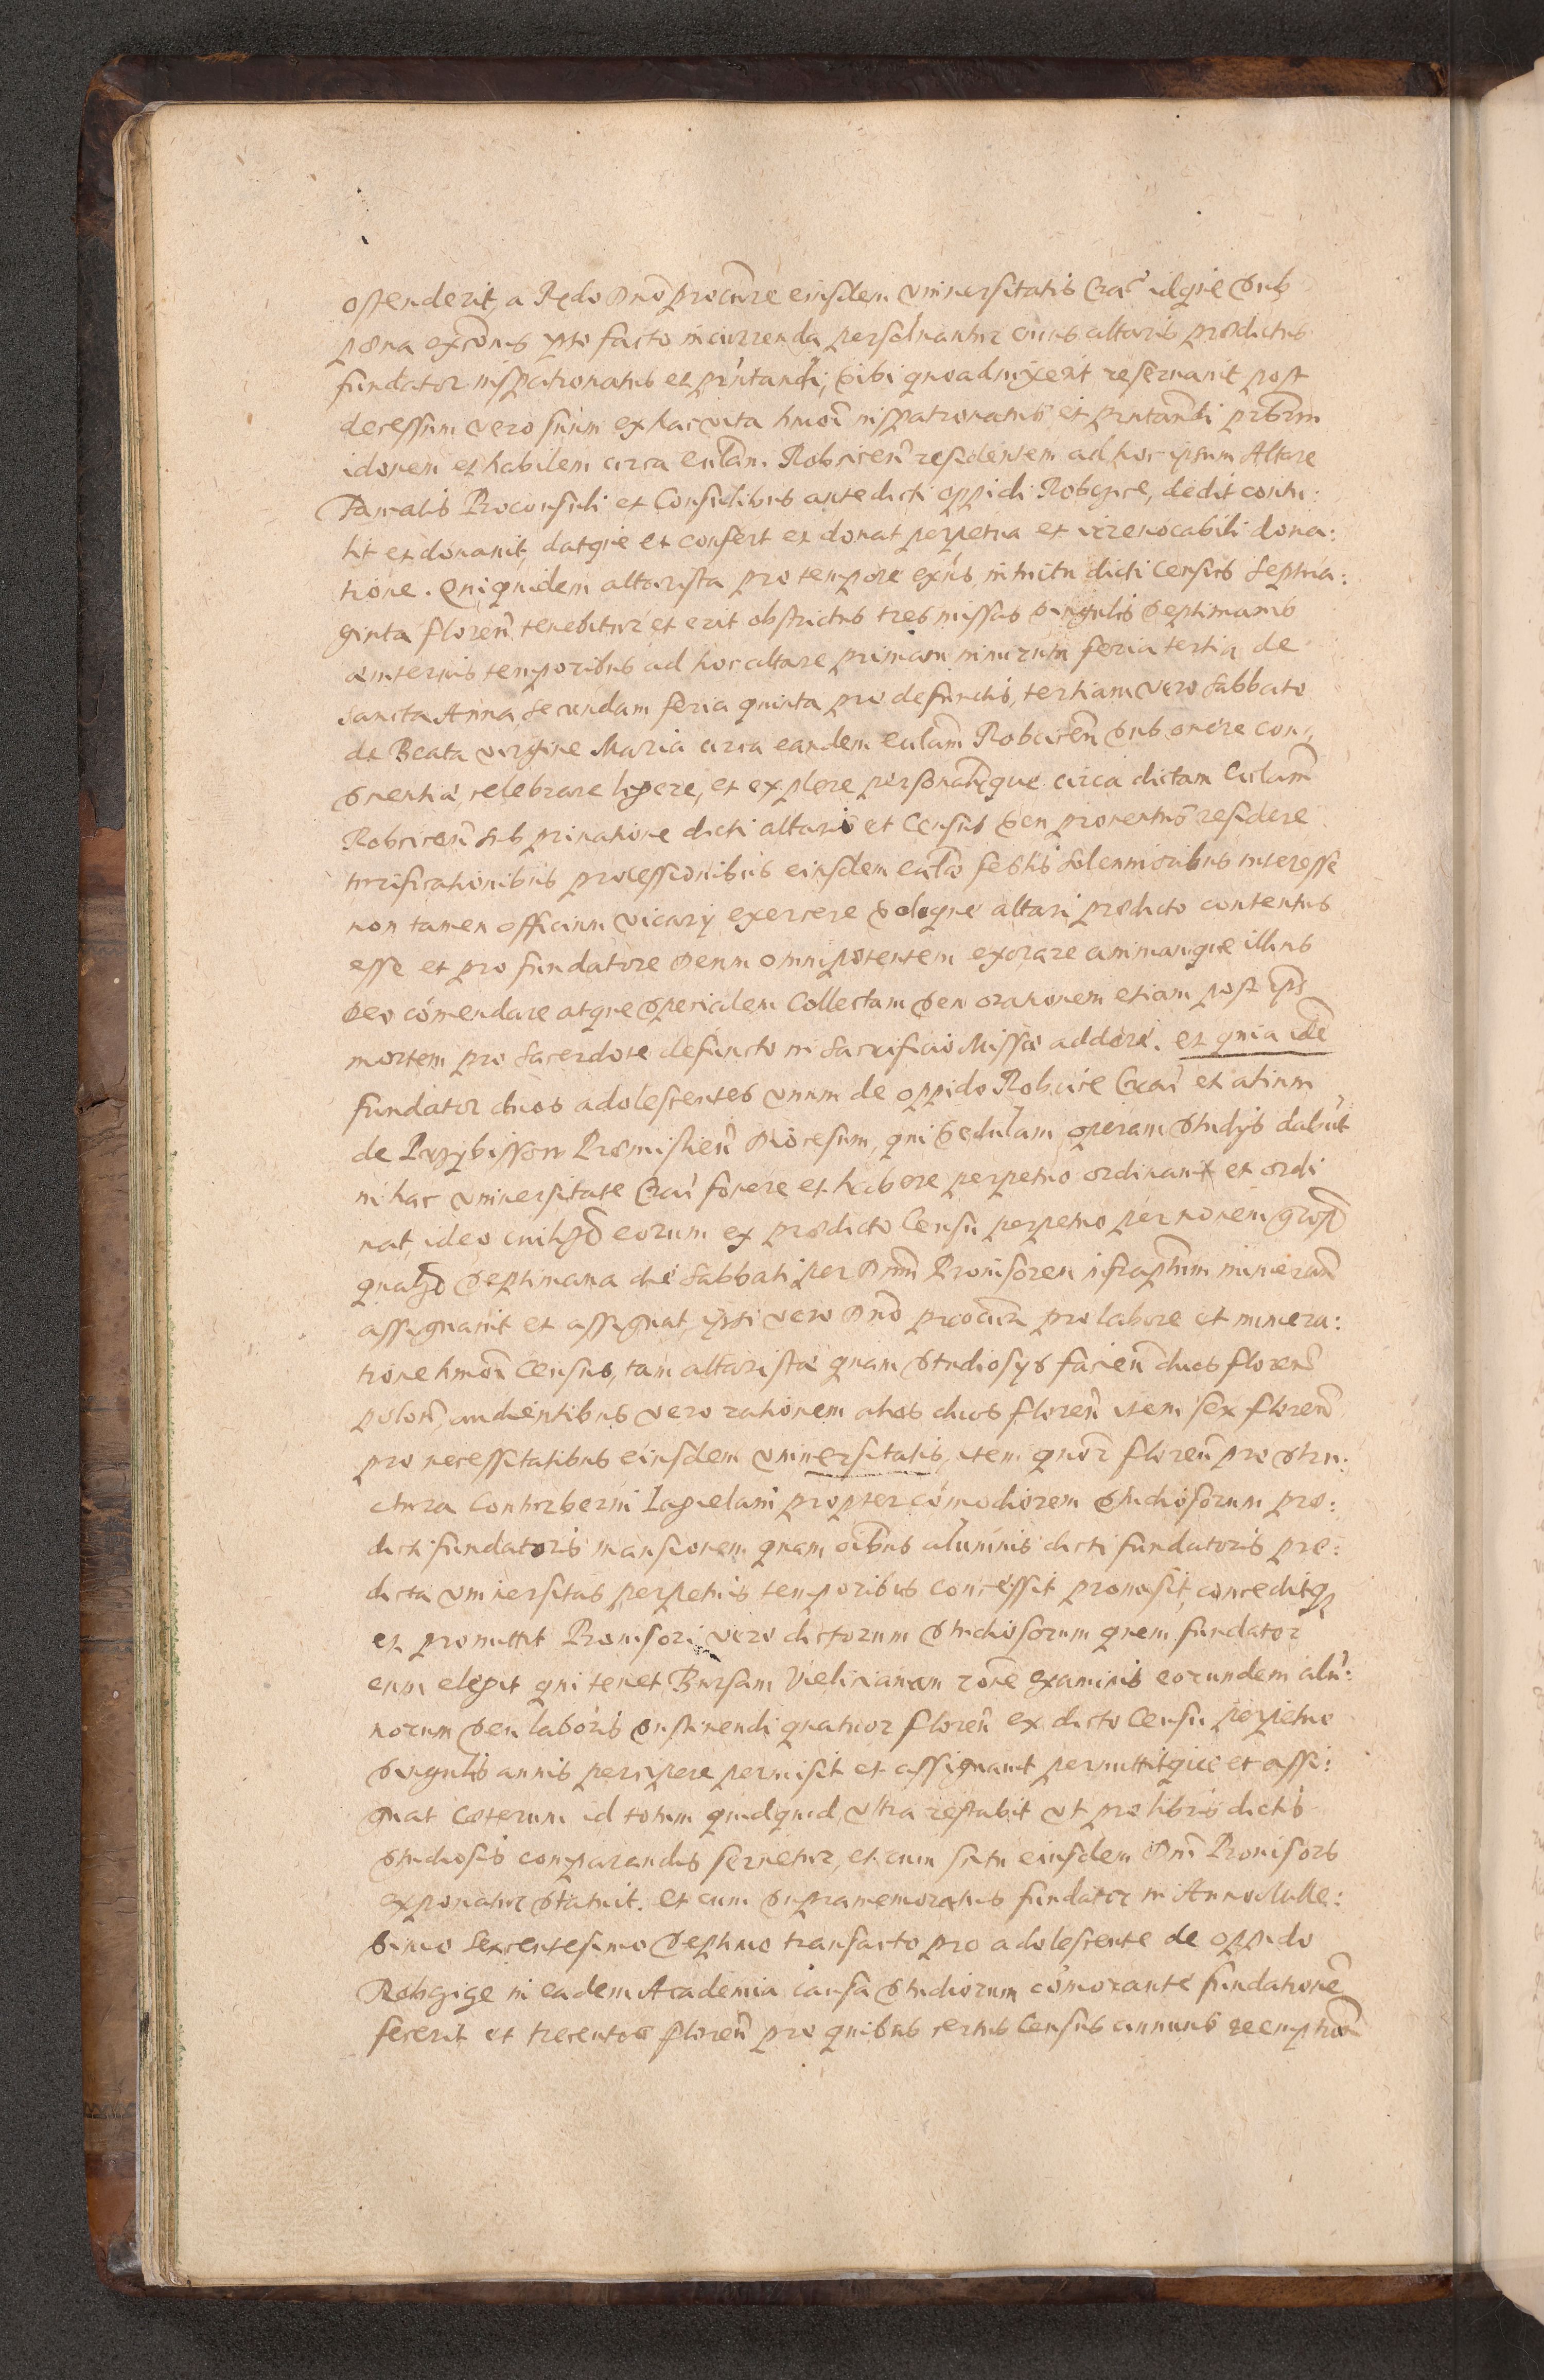 ostenderit, a Rṇdo Dnō procūre eiusdem Vniuersitatis Craē idque sub
pœna excōnis ipso facto incurrenda persoluantur cuius altaris prædictus
fundator iuspatronatus et pn̄tandi, sibi quoad uixerit reseruauit post
decessum vero suum ex hac vita hmōi iuspatronatus et pn̄tandi prb̄rm
idoneu et habilem circa ecclām Robcicen̄ residentem ad hoc ipsum Altare
Famatis Proconsuli et Consulibus antedicti oppidi Robczice, dedit contu:
lit et donauit, datque et confert et donat perpetua et irreuocabili dona:
tione. Qui quidem altarista pro tempore exn̄s intuitu dicti census septua:
ginta floren̄ tenebitur et erit obstrictus tres missas singulis septimanis
æuiternis temporibus ad hoc altare primam nimirum feria tertia de
sancta Anna secundam feria quinta pro defunctis, tertiam vero Sabbato
de Beata virgine Maria circa eandem eclām Robcicen̄ sub onere con,,
scientiæ, celebrare legere, et explere personalr̄que circa dictam Eclām
Robcicen̄ sub priuatione dicti altaris et Census seu prouentus residere
turificationibus processionibus eiusdem eclæ festis solennioribus interesse
non tamen officium vicarÿ exercere soloque altari prædicto contentus
esse et pro fundatore Deum omnipotentem exorare animamque illius
Deo cōmendare atque specialem Collectam seu orationem etiam post ips
mortem pro sacerdote defuncto in sacrificio Missæ addere. et quia idē
fundator duos adolescentes vnum de oppido Robcice Crac̄ et alium
de Przybissow Præmislien̄ Diocesum, qui sedulam operam studÿs dabūt
in hac vniuersitate Crac̄ fouere et habere perpetuo ordinauit et ordi
nat, ideo cuilȝ eorum ex prædicto Censu perpetuo per nouem gross
qualȝ septimana die Sabbati per Dnm̄ Prouisorem īfraptum numerañ
assignauit et assignat, ipsi vero Dnō procūr̄i pro labore et numera:
tione hmōi Census, tam altaristæ quam studiosys facien̄ duos floren̄
polon̄, audientibus vero rationem alios duos floren̄ item sex floren̄
pro necessitatibus eiusdem vniuersitatis, item quōr floren̄ pro stru:
ctura Contubernÿ Iagielani propter cōmodiorem studiosorum præ:
dicti fundatoris mansionem quam oīb̄us alumnis dicti fundatoris præ:
dicta vniuersitas perpetuis temporibus concessit promisit, conceditqȝ
et promittit Prouisori vero dictorum studiosorum quem fundator
eum elegit qui tenet Bursam Vielicianam rōne examinis eorundem alū:
norum seu laboris sustinendi quatuor floren̄ ex dicto Censu perpetuo
singulis annis percipere permisit et assignauit permittitque et assi:
gnat Cæterum id totum quidquid vltra restabit vt pro libris dictis
studiosis comparandis seruetur, et cum scitu eiusdem Dnī Prouisoris
exponatur statuit. et cum supramemoratus fundator in Anno Mille:
simo sexcentesimo septimo transacto pro adolescente de oppido
Robczice in eadem Academia causa studiorum cōmorante fundationē
fecerit et trecentos floren̄ pro quibus certus Census annuus reemptiōn